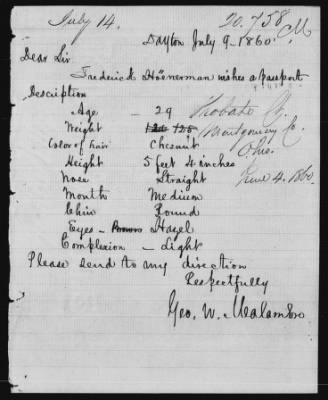 July 14. 20.758 M
Dayton July 9 - 1860.
Dear Sir
Frederick Hönerman wishes a passport
Description
Age - 29
Weight 125
Color of hair Chesnut
Height 5 feet 4 inches
Nose Straight
Mouth Medium
Chin Round
Eyes - Brown Hazel
Complexion - Light
Probate
Montgomery Co.
Ohio.
June 4. 1860.
Please send to my direction
Respectfully
Geo. W. Malambre